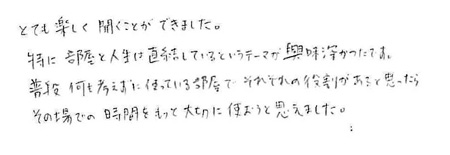 とても楽しく聞くことができました。
特に部屋と人生は直結しているというテーマが興味深かったです。
普段何も考えずに使っている部屋でそれぞれの役割があると思ったら
その場での時間をもっと大切に使おうと思えました。